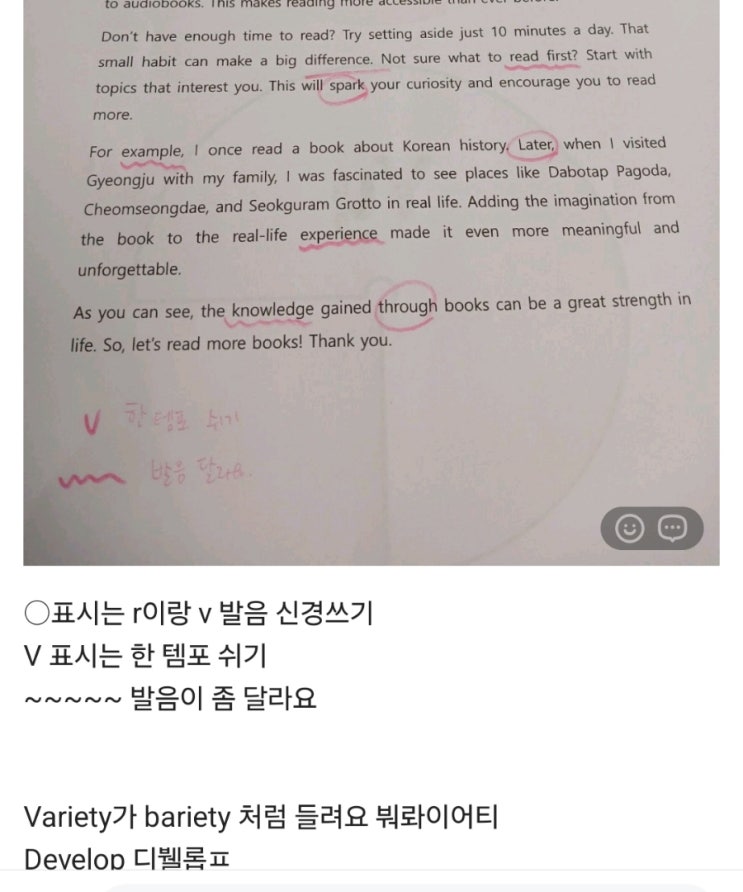 to audiobooks. This makes reading more accessible than ever before.
Don't have enough time to read? Try setting aside just 10 minutes a day. That
small habit can make a big difference. Not sure what to read first? Start with
topics that interest you. This will spark your curiosity and encourage you to read
more.
For example, I once read a book about Korean history. Later, when I visited
Gyeongju with my family, I was fascinated to see places like Dabotap Pagoda,
Cheomseongdae, and Seokguram Grotto in real life. Adding the imagination from
the book to the real-life experience made it even more meaningful and
unforgettable.
As you can see, the knowledge gained through books can be a great strength in
life. So, let's read more books! Thank you.
V 한 템포 쉬기
~~~ 발음 달라요.
○표시는 r이랑 v 발음 신경쓰기
V 표시는 한 템포 쉬기
~~~~~ 발음이 좀 달라요
Variety가 bariety 처럼 들려요 붜롸이어티
Develop 디뷀롭ㅍ